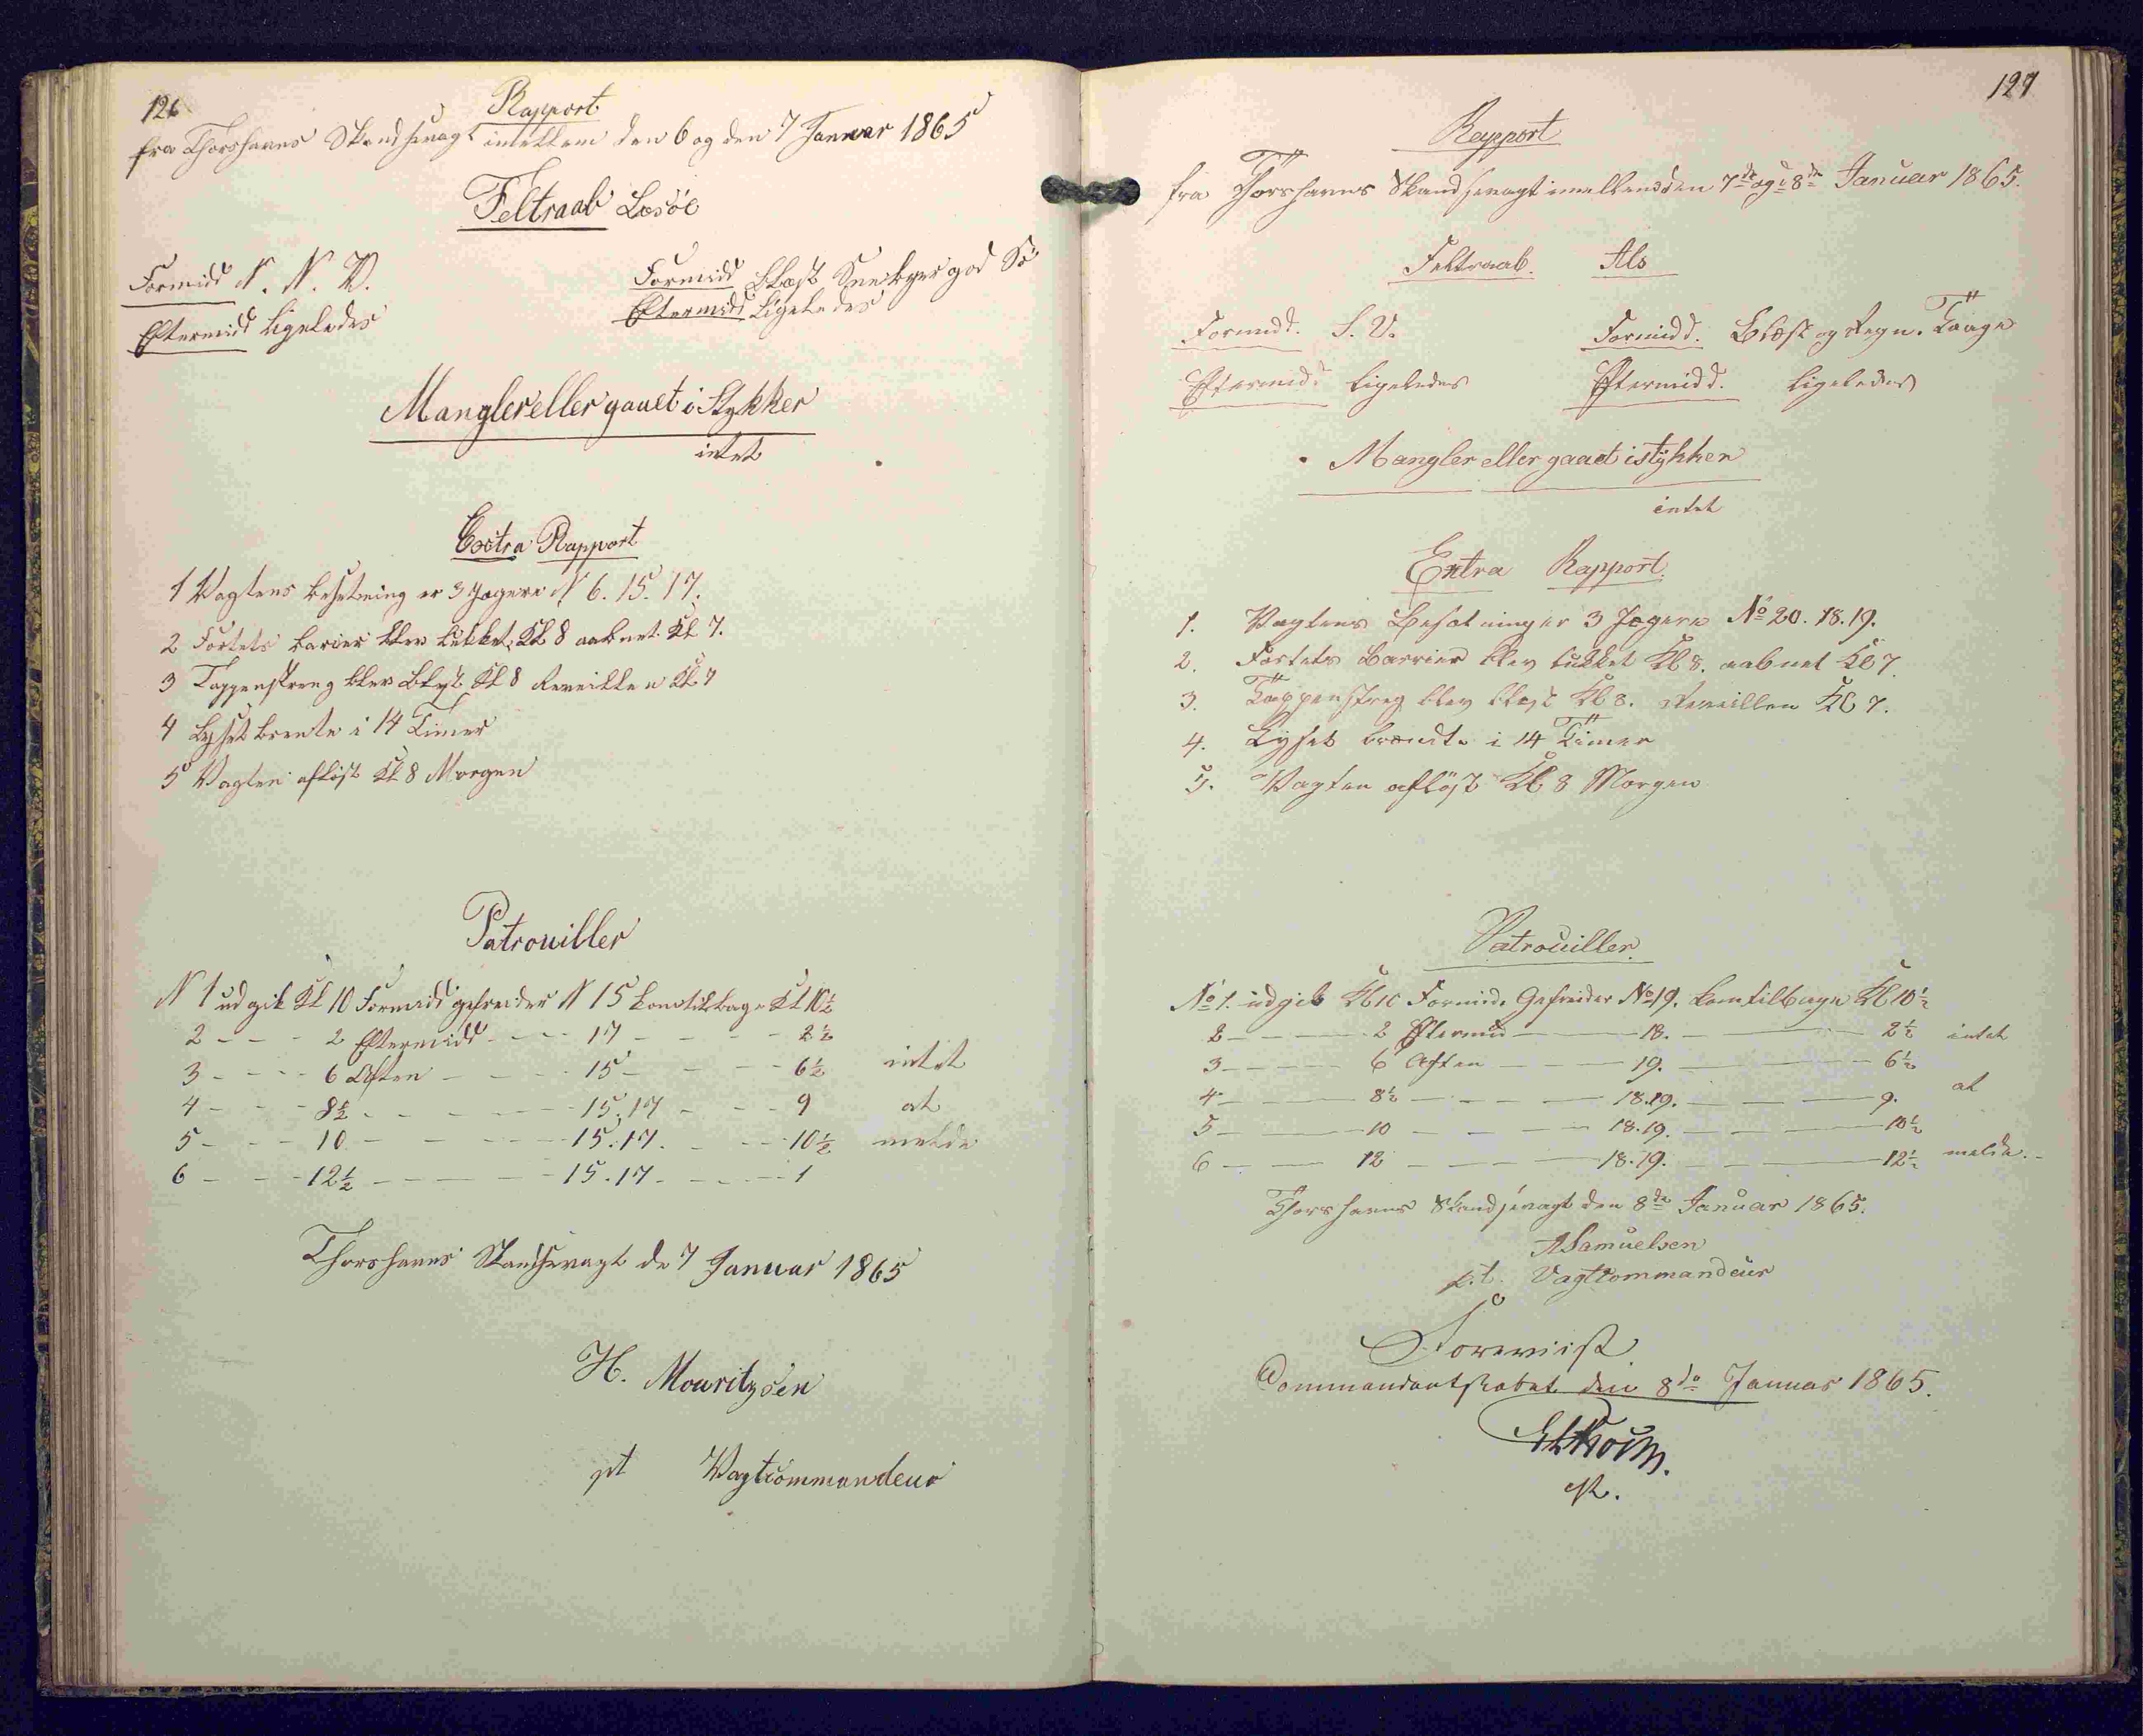 126
Rapport
fra Thorshavns Skandsevagt imellem den 6 og den 7 Januar 1865
Feltraab Lesöe
Formidd N. N. V.
Eftermidd ligeledes
Formidd Blæst Sneebyger god Sö
Eftermidd Ligeledes
Mangler eller gaaet i Stykker
intet
Extra Rapport
1 Vagtens besetning er 3 Jægere N 6. 15. 17.
2 Fortets barier blev lukket Kl 8 aabnet Kl 7.
3 Tappenstreng blev Blest Kl 8 Reveillen Kl 7
4 Lyset brente i 14 Timer
5 Vagten aflöst Kl 8 Morgen
Patrouiller
N 1 udgik Kl 10 Formidd gefreider N 15 kom tilbage Kl 10½
2 - - - 2 Eftermidd - - - 17 - - - - 2½
3 - - - - 6 Aften - - - - 15 - - - - 6½ intet
4 - - - 8½ - - - - - 15.17 - - - 9 at
5 - - - 10 - - - - - 15.17. - - - 10½ melde
6 - - - 12½ - - - - - 15.17 - - - - 1
Thorshavns Skandsevagt de 7 Januar 1865
H. Mouritzsen
pt Vagtcommandeur
127
Rapport
fra Thorshavns Skandsevagt imellem den 7de og 8de Januar 1865.
Feltraab. Als
Formidd. S. V.
Eftermidd. ligeledes
Formidd. Blæst og Regn. Taage
Eftermidd. ligeledes
Mangler eller gaaet istykker
intet
Extra Rapport.
1. Vagtens Besætning er 3 Jægere No 20. 18. 19.
2. Fortets Barrier blev lukket Kl 8. aabnet Kl 7.
3. Tappenstreg blev blæst Kl 8. Reveillen Kl 7.
4. Lyset brændte i 14 Timer
5. Vagten aflöst Kl 8 Morgen
Patrouiller.
No 1. udgik Kl 10 Formid. Gefreider No 19. kom tilbage Kl 10½
2 - - - 2 Eftermid - - - 18. - - - 2½ intet
3 - - - 6 Aften - - - 19. - - - 6½
4 - - - 8½ - - - 18.19. - - - 9. at
5 - - - 10 - - - 18.19. - - - 10½
6 - - - 12 - - - 18.19. - - - 12½ melde.
Thorshavns Skandsevagt den 8de Januar 1865.
A Samuelsen
p.t. Vagtcommandeur
Foreviist
Commandantskabet den 8de Januar 1865.